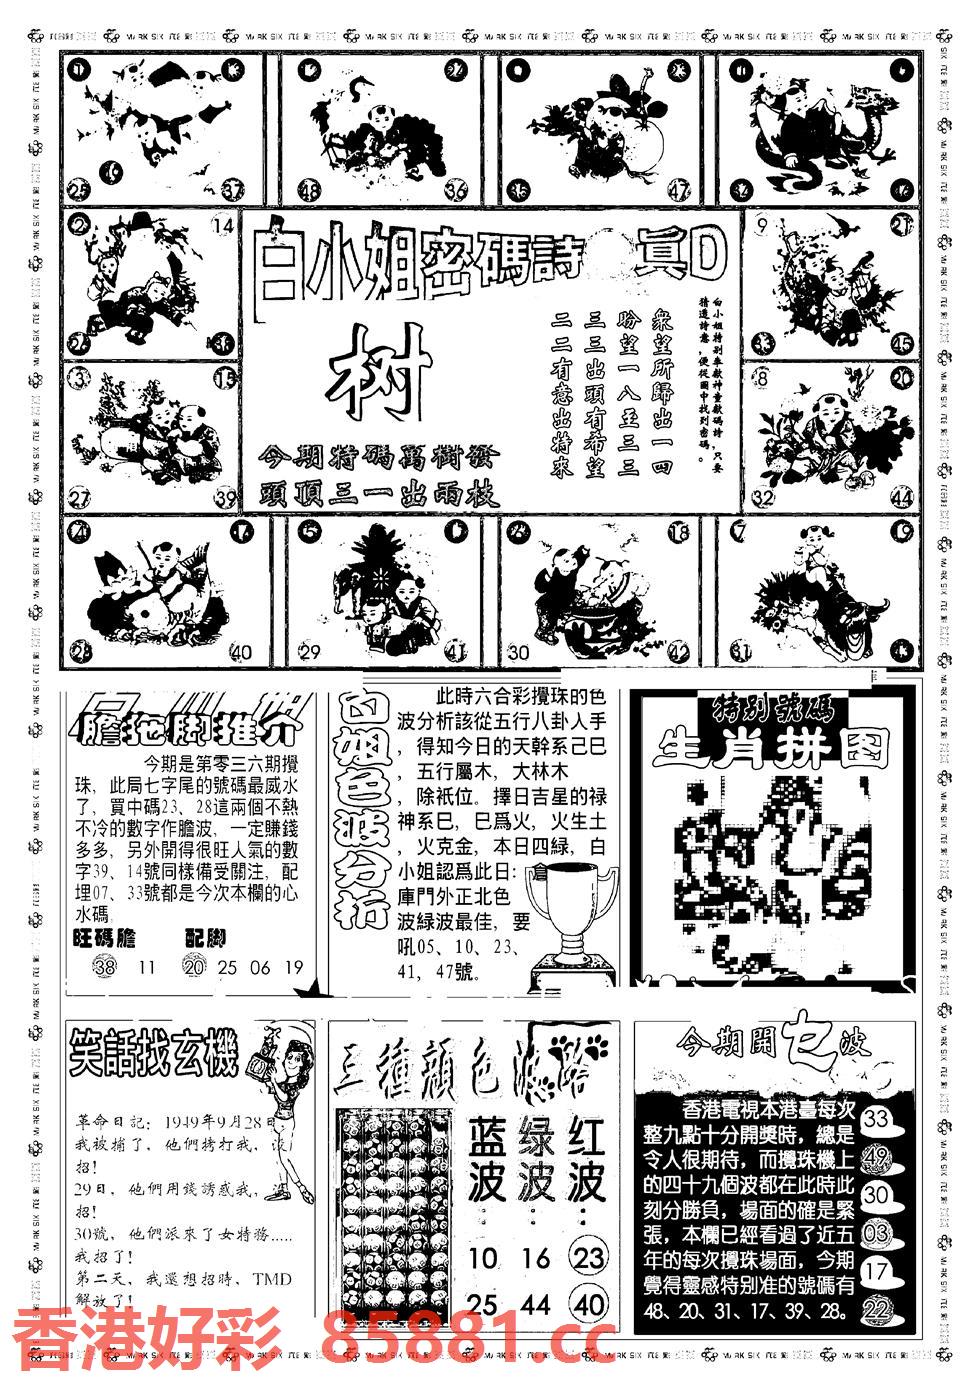 25 37
48 36
35 47
2 14
白小姐密碼詩 真D
9 21
33 45
树
今期特碼萬樹發
頭頂三一出兩枝
白小姐特别奉獻神童獻碼詩,只要
猜透詩意,便從圖中找到密碼。
衆望所歸出一四
盼望一八至三三
三三出頭有希望
二二有意出特來
3 15
27 39
8 20
32 44
28 40
5
29 41
18
30 42
7 19
31
膽拖脚推介
今期是第零三六期攪
珠，此局七字尾的號碼最威水
了，買中碼23、28這兩個不熱
不冷的數字作膽波，一定賺錢
多多，另外開得很旺人氣的數
字39、14號同樣備受關注，配
埋07、33號都是今次本欄的心
水碼
旺碼膽 配脚
38 11 20 25 06 19
白姐色波分析
此時六合彩攪珠的色
波分析該從五行八卦人手
，得知今日的天幹系己巳
，五行屬木，大林木
，除衹位。擇日吉星的禄
神系巳，巳爲火，火生土
，火克金，本日四緑，白
小姐認爲此日：倉
庫門外正北色
波緑波最佳，要
吼05、10、23、
41，47號。
特别號碼
生肖拼图
笑話找玄機
革命日記：1949年9月28日
我被捕了，他們拷打我，没
招！
29日，他們用錢誘惑我，没
招！
30號，他們派來了女特務.....
我招了！
第二天，我還想招時，TMD
解放了！
三種顔色
蓝波： 绿波： 红波：
10 16 23
25 44 40
今期開七波
香港電視本港臺每次
整九點十分開獎時，總是
令人很期待，而攪珠機上
的四十九個波都在此時此
刻分勝負，場面的確是緊
張，本欄已經看過了近五
年的每次攪珠場面，今期
覺得靈感特别准的號碼有
48、20、31、17、39、28。
33
49
30
03
17
22
香港好彩 85881.cc